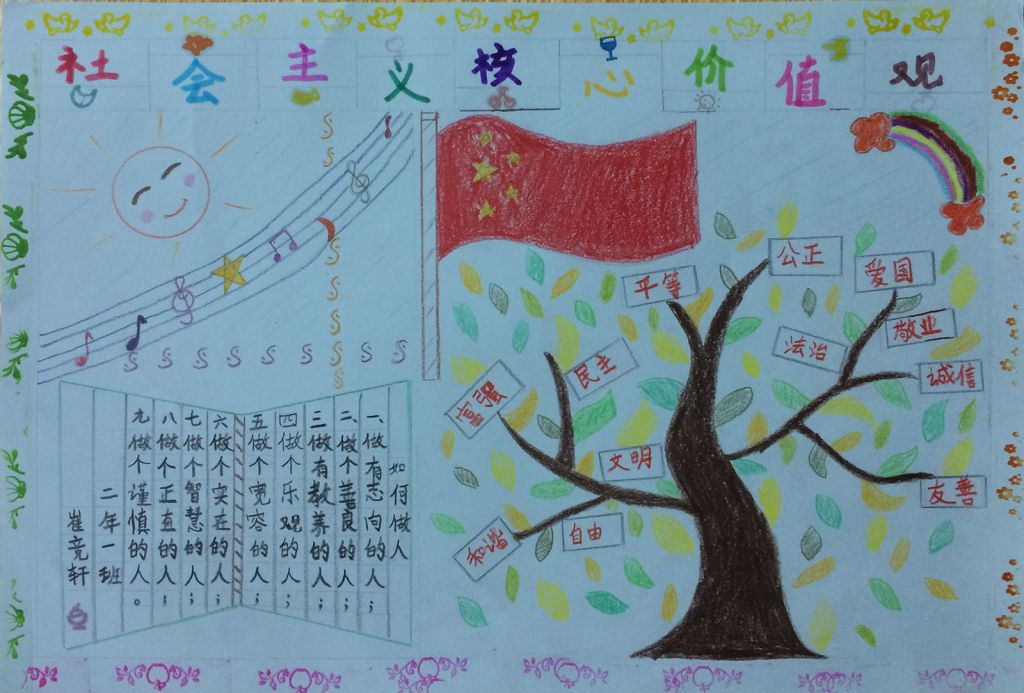 社会主义核心价值观
平等
公正
爱国
敬业
法治
诚信
民主
富强
文明
友善
和谐
自由
如何做人
一、做有志向的人；
二、做个善良的人；
三做有教养的人；
四做个乐观的人；
五做个宽容的人；
六做个实在的人；
七做个智慧的人；
八做个正直的人；
九做个谨慎的人。
二年一班
崔竞轩